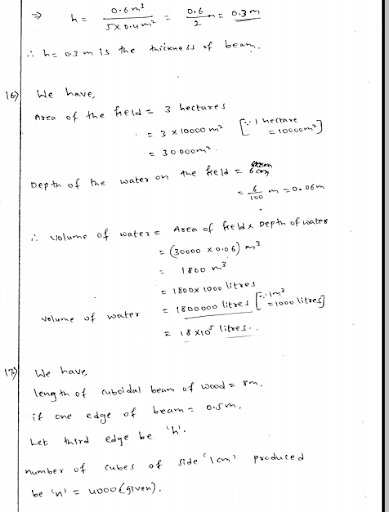 ⇒ h = 0.6 m³ / 5×0.4 m² = 0.6 / 2 m = 0.3 m
∴ h = 0.3 m is the thickness of beam.
16) We have,
Area of the field = 3 hectares
= 3 × 10000 m² [∵ 1 hectare = 10000m²]
= 30000m².
Depth of the water on the field = 6 cm
= 6/100 m = 0.06m
∴ volume of water = Area of field × Depth of water
= (30000 × 0.06) m³
= 1800 m³
= 1800 × 1000 litres
volume of water = 1800000 litres [∵ 1m³ = 1000 litres]
= 18 ×10⁵ litres.
17) We have,
length of cuboidal beam of wood = 8m.
if one edge of beam = 0.5m.
Let third edge be 'h'.
number of cubes of side '1cm' produced
be 'n' = 4000 (given).